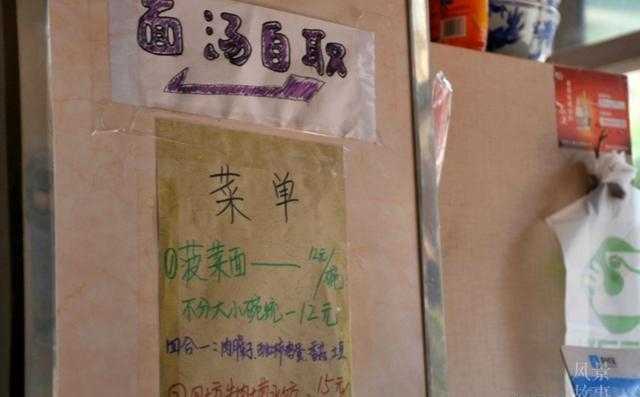 面汤自取
菜单
①菠菜面——12元/碗
不分大小碗统一12元
四合一:肉臊子 西红柿鸡蛋
15元
风景
故事